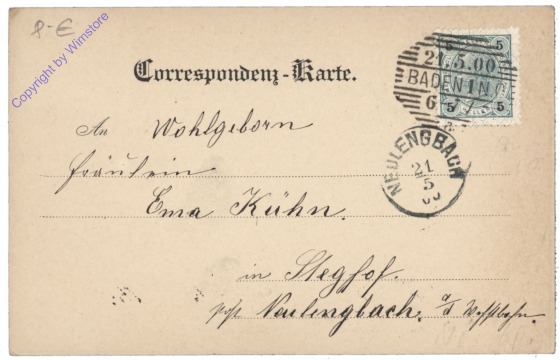 8-€
Copyright by Wimstore
Correspondenz-Karte.
5 5
21.5.00
BADEN 1 N.Ö
6
5 5
An Wohlgeborn
Fräulein
NEULENGBACH
21
5
00
Ema Kühn.
in Steghof.
post Neulengbach. a/d Westbahn.